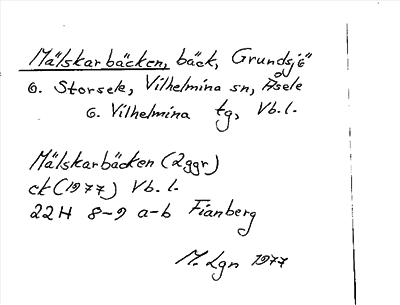 Mälskarbäcken, bäck, Grundsjö
o. Storsele, Vilhelmina sn, Åsele
o. Vilhelmina tg, Vb.l.
Mälskarbäcken (2ggr)
ek (1977) Vb.l.
22H 8-9 a-b Fianberg
M. Lgn 1977